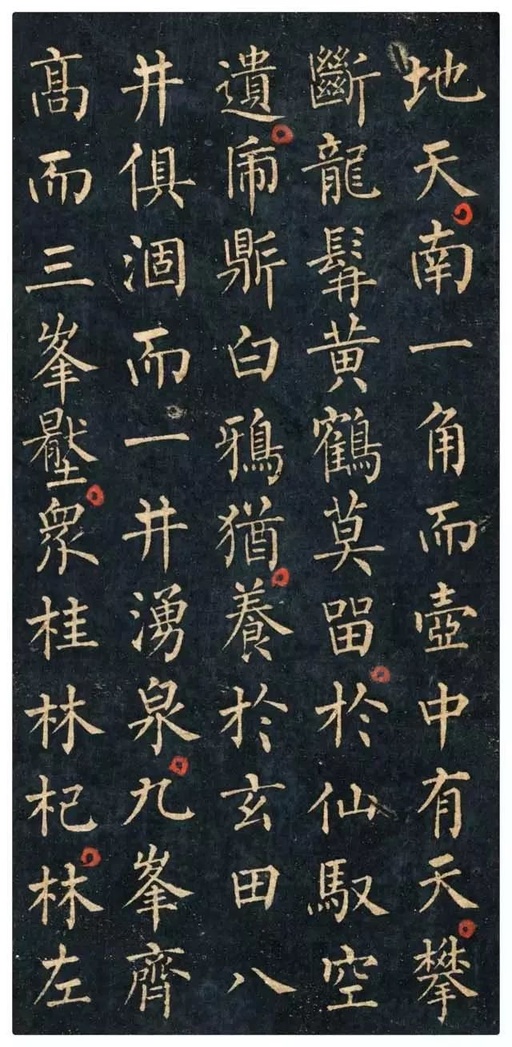 地天南一角而壺中有天攀
斷龍髯黄鶴莫留於仙馭空
遺鼎白鴉猶養於玄田八
井俱涸而一井湧泉九峯齊
髙而三峯壓衆桂林杞林左